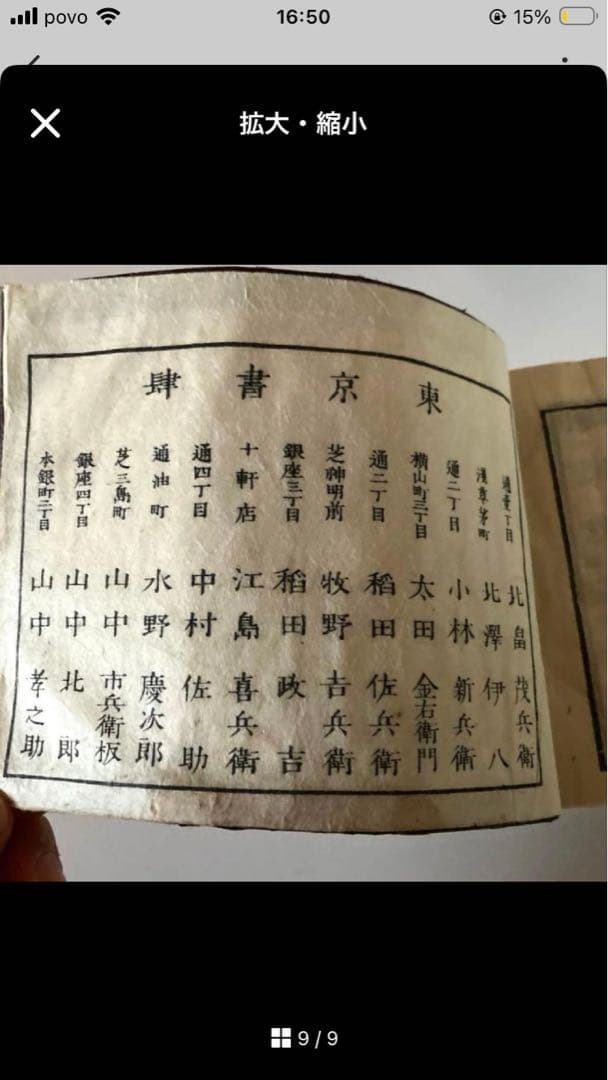 povo
16:50
15%
拡大・縮小
東京書肆
通壹丁目 北畠茂兵衛
淺草茅町 北澤伊八
通二丁目 小林新兵衛
横山町三丁目 太田金右衛門
通二丁目 稻田佐兵衛
芝神明前 牧野吉兵衛
銀座三丁目 稻田政吉
十軒店 江島喜兵衛
通四丁目 中村佐助
通油町 水野慶次郎
芝三島町 山中市兵衛板
銀座四丁目 山中北郎
本銀町二丁目 山中孝之助
9 / 9